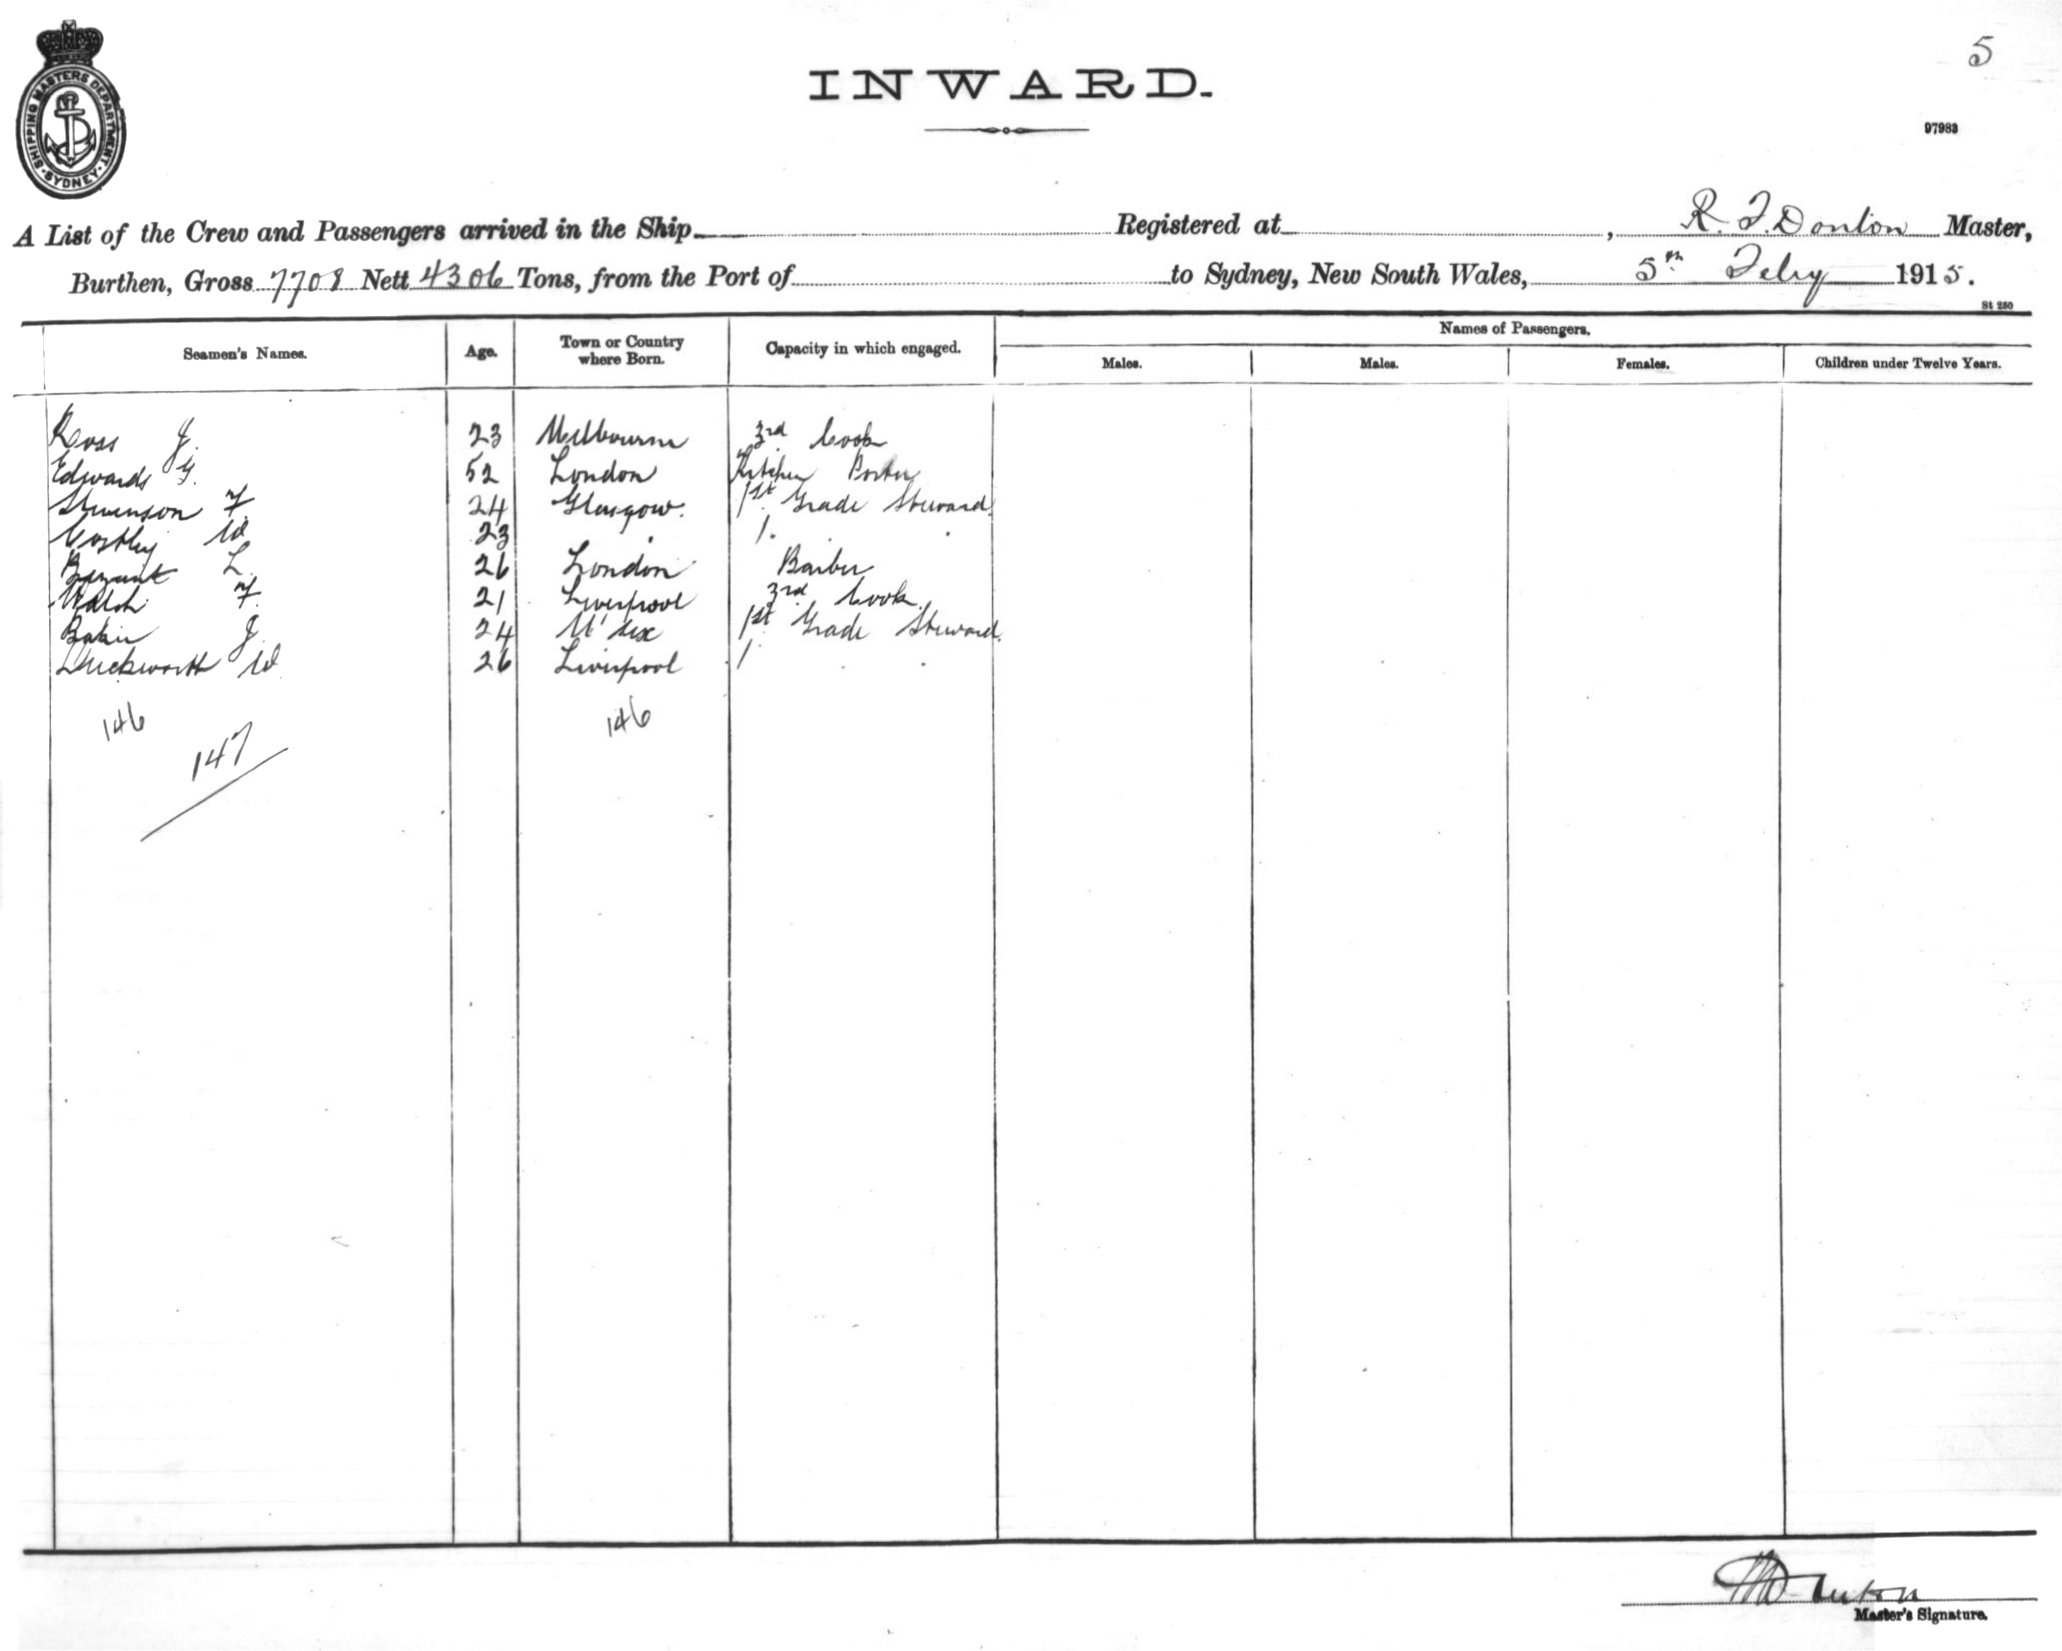 5
INWARD.
97983
SHIPPING MASTERS DEPARTMENT · SYDNEY ·
A List of the Crew and Passengers arrived in the Ship Registered at , R. J. Donlon Master,
Burthen, Gross 7708 Nett 4306 Tons, from the Port of to Sydney, New South Wales, 5th Feby 1915.
St 250
Names of Passengers.
Seamen's Names. Age. Town or Country where Born. Capacity in which engaged. Males. Males. Females. Children under Twelve Years.
Ross J. 23 Melbourne 3rd Cook
Edwards G. 52 London Kitchen Porter
Stevenson F. 24 Glasgow. 1st Grade Steward.
Costley W 23 . 1. .
Bryant L. 26 London Barber
Walsh F. 21 Liverpool 3rd Cook.
Baker J. 24 M'sex 1st Grade Steward.
Duckworth W. 26 Liverpool 1 . .
146 146
147
Master's Signature.